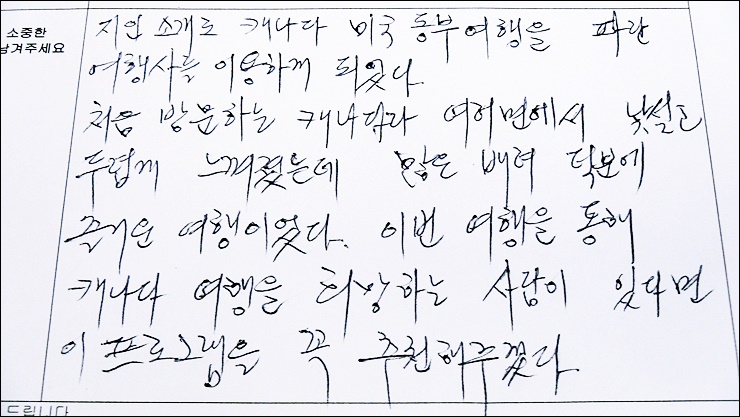 소중한
남겨주세요
지인 소개로 캐나다 미국 동부여행을 파란
여행사를 이용하게 되었다.
처음 방문하는 캐나다라 여러면에서 낯설고
두렵게 느껴졌는데 많은 배려 덕분에
즐거운 여행이었다. 이번 여행을 통해
캐나다 여행을 희망하는 사람이 있다면
이 프로그램을 꼭 추천해주겠다.
드립니다